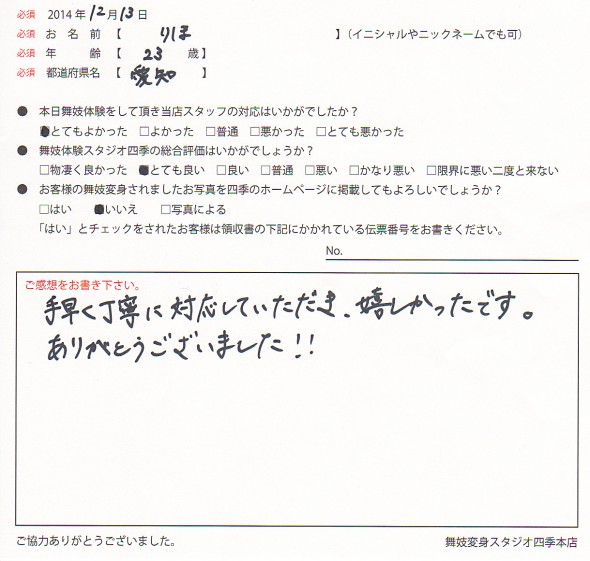 必須 2014年12月13日
必須 お名前【 りほ 】（イニシャルやニックネームでも可）
必須 年 齢【 23 歳】
必須 都道府県名【 愛知 】
● 本日舞妓体験をして頂き当店スタッフの対応はいかがでしたか？
■とてもよかった □よかった □普通 □悪かった □とても悪かった
● 舞妓体験スタジオ四季の総合評価はいかがでしょうか？
□物凄く良かった ■とても良い □良い □普通 □悪い □かなり悪い □限界に悪い二度と来ない
● お客様の舞妓変身されましたお写真を四季のホームページに掲載してもよろしいでしょうか？
□はい ■いいえ □写真による
「はい」とチェックをされたお客様は領収書の下記にかかれている伝票番号をお書きください。
No.
ご感想をお書き下さい。
手早く丁寧に対応していただき、嬉しかったです。
ありがとうございました!!
ご協力ありがとうございました。 舞妓変身スタジオ四季本店